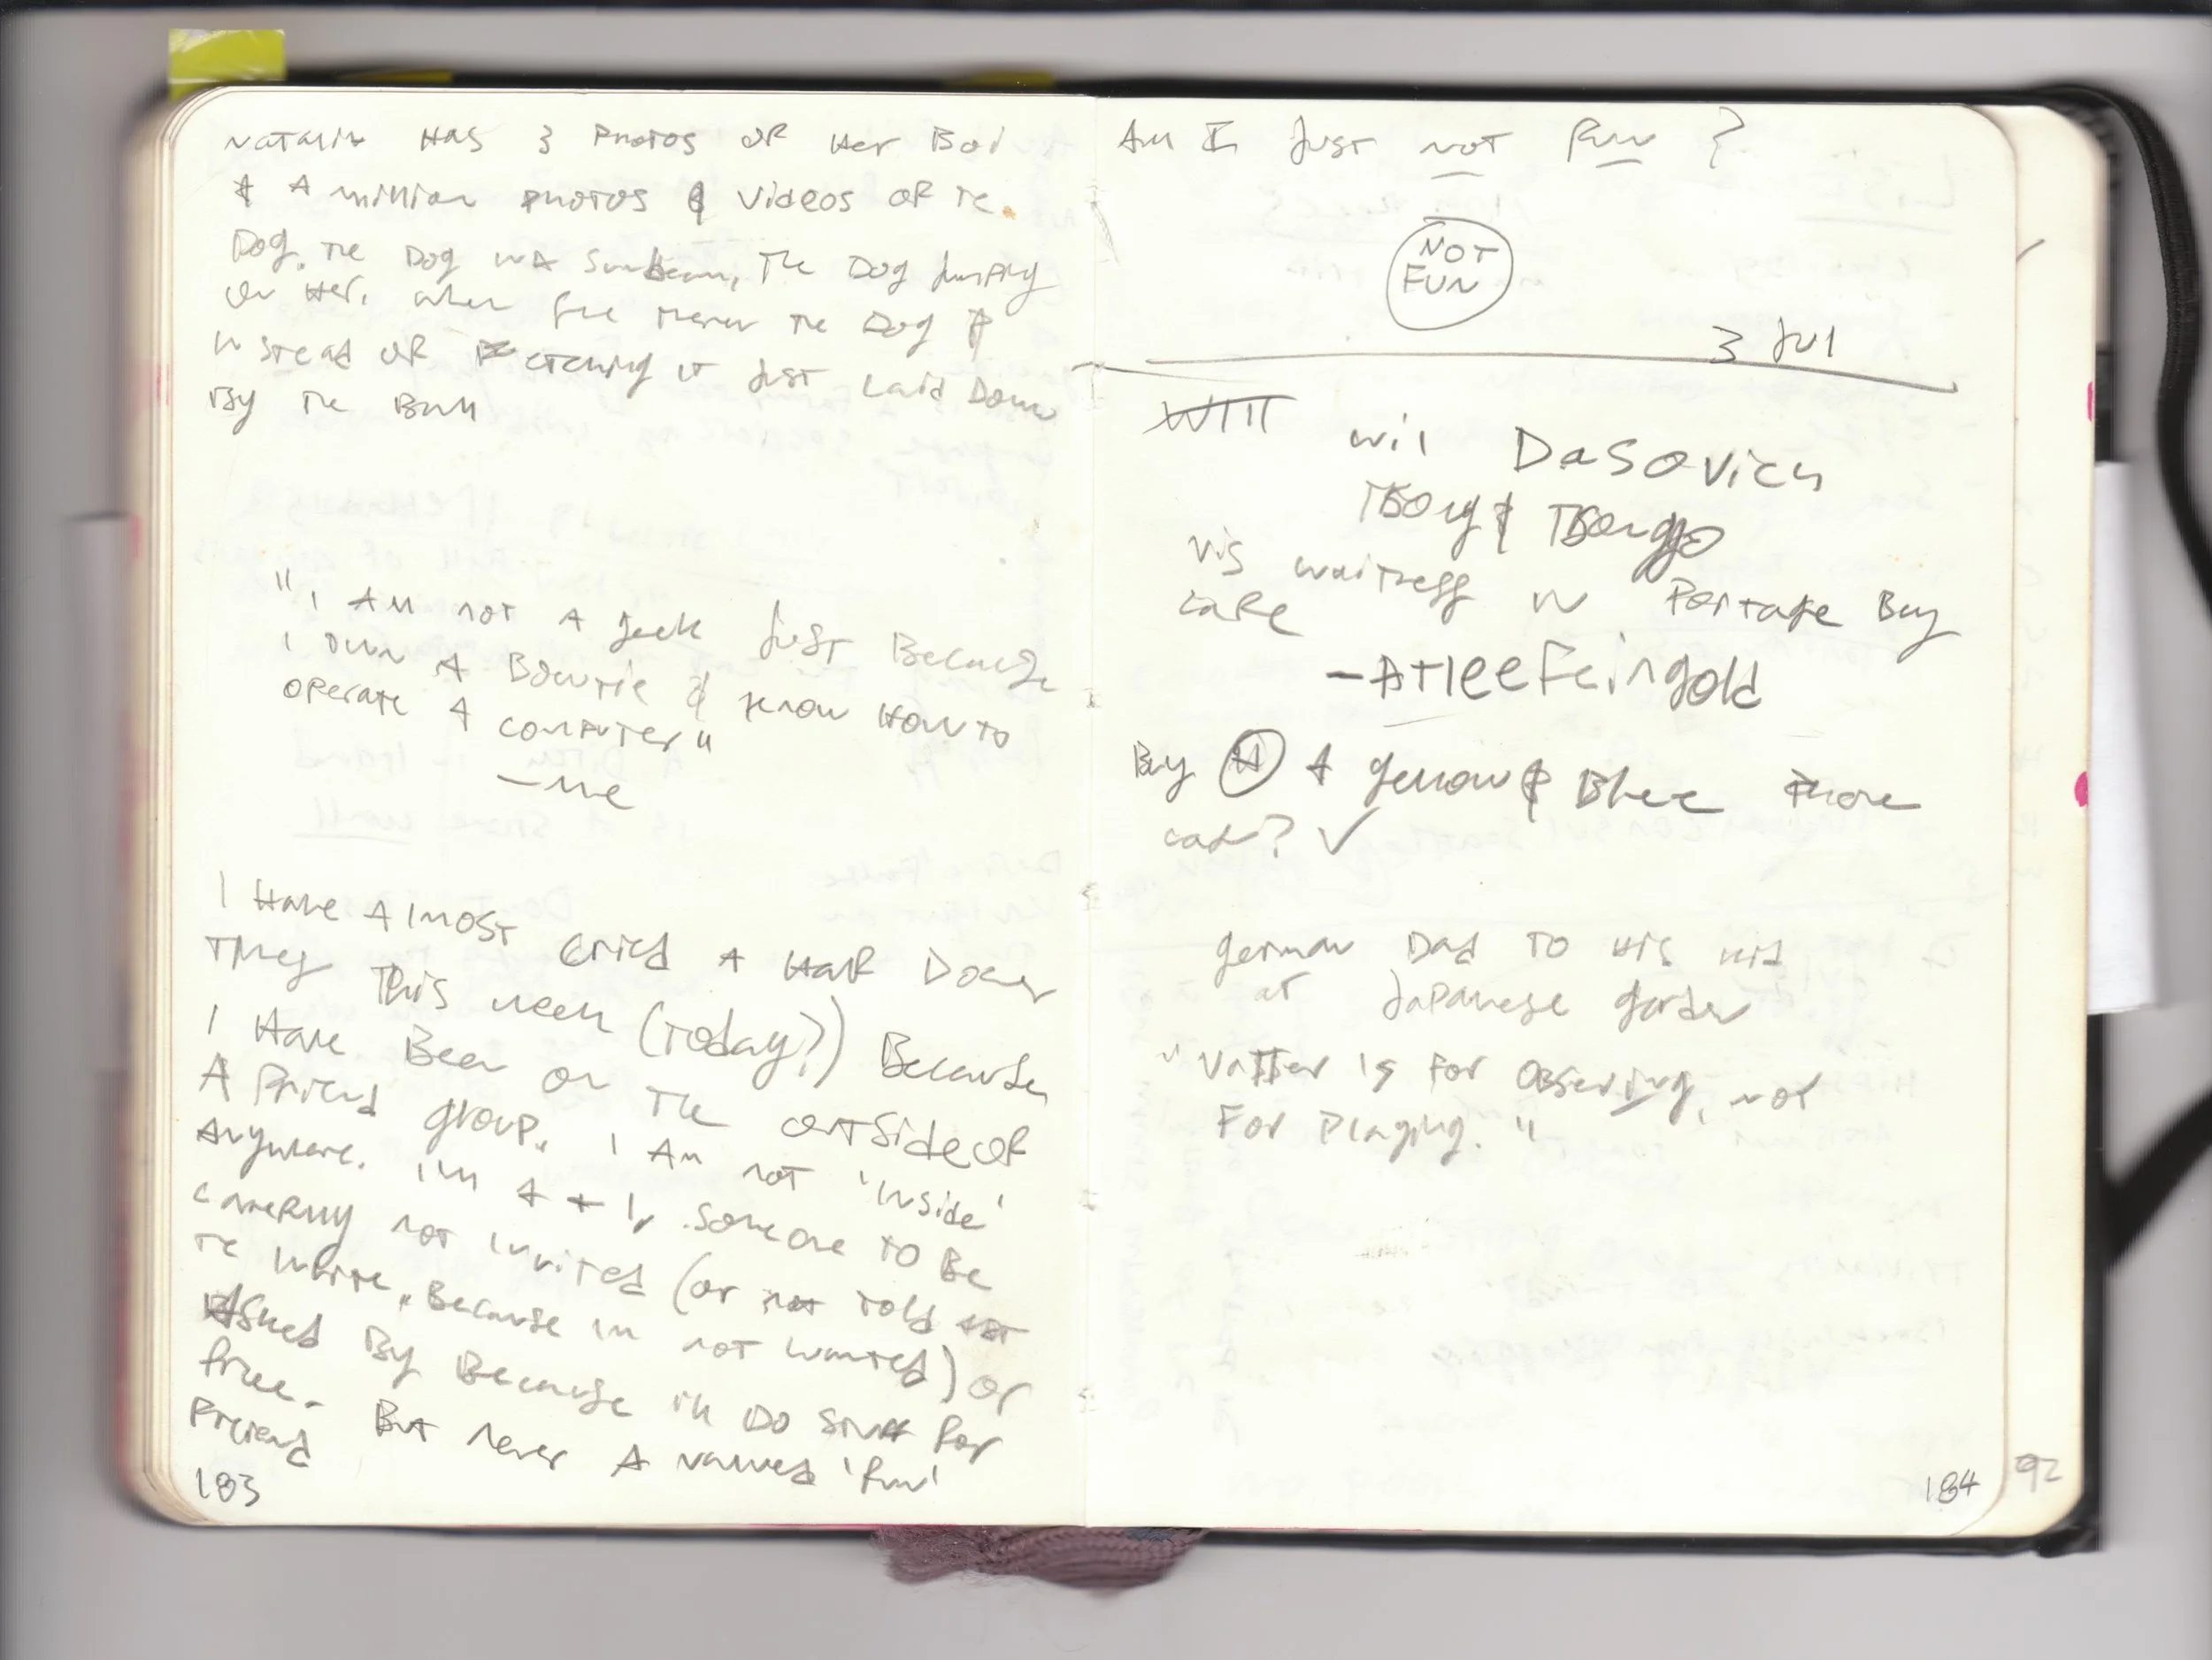 Natalie Has 3 Photos of Her Boi
& A million photos & videos of te
Dog. The Dog in A Sunbeam, The Dog jumping
on Her, when she threw the Dog A
instead of Fetching it just Laid Down
By the Ball
"I Am not A geek just Because
I own A Bowtie & know How to
operate A computer"
—me
I Have Almost cried A Half Dozen
Times This week (Today?) Because
I Have Been on The outside of
A Friend group. I Am not 'inside'
Anywhere. I'm A +1, someone to Be
carefully not invited (or not told
te invite, Because im not wanted) or
Asked By Because ill Do Stuff for
free. But never A valued 'fun'
Friend
183
Am I Just not fun ?
NOT
FUN
3 Jul
Will
Wil Dasovich
Borg & Bongo
Vis waitress in Portage Bay
Cafe
—Atlee Feingold
Buy H A yellow & Blue Phone
case? ✓
German Dad To His kid
at Japanese garden
"Vatter is For Observing, not
For Playing."
184
92